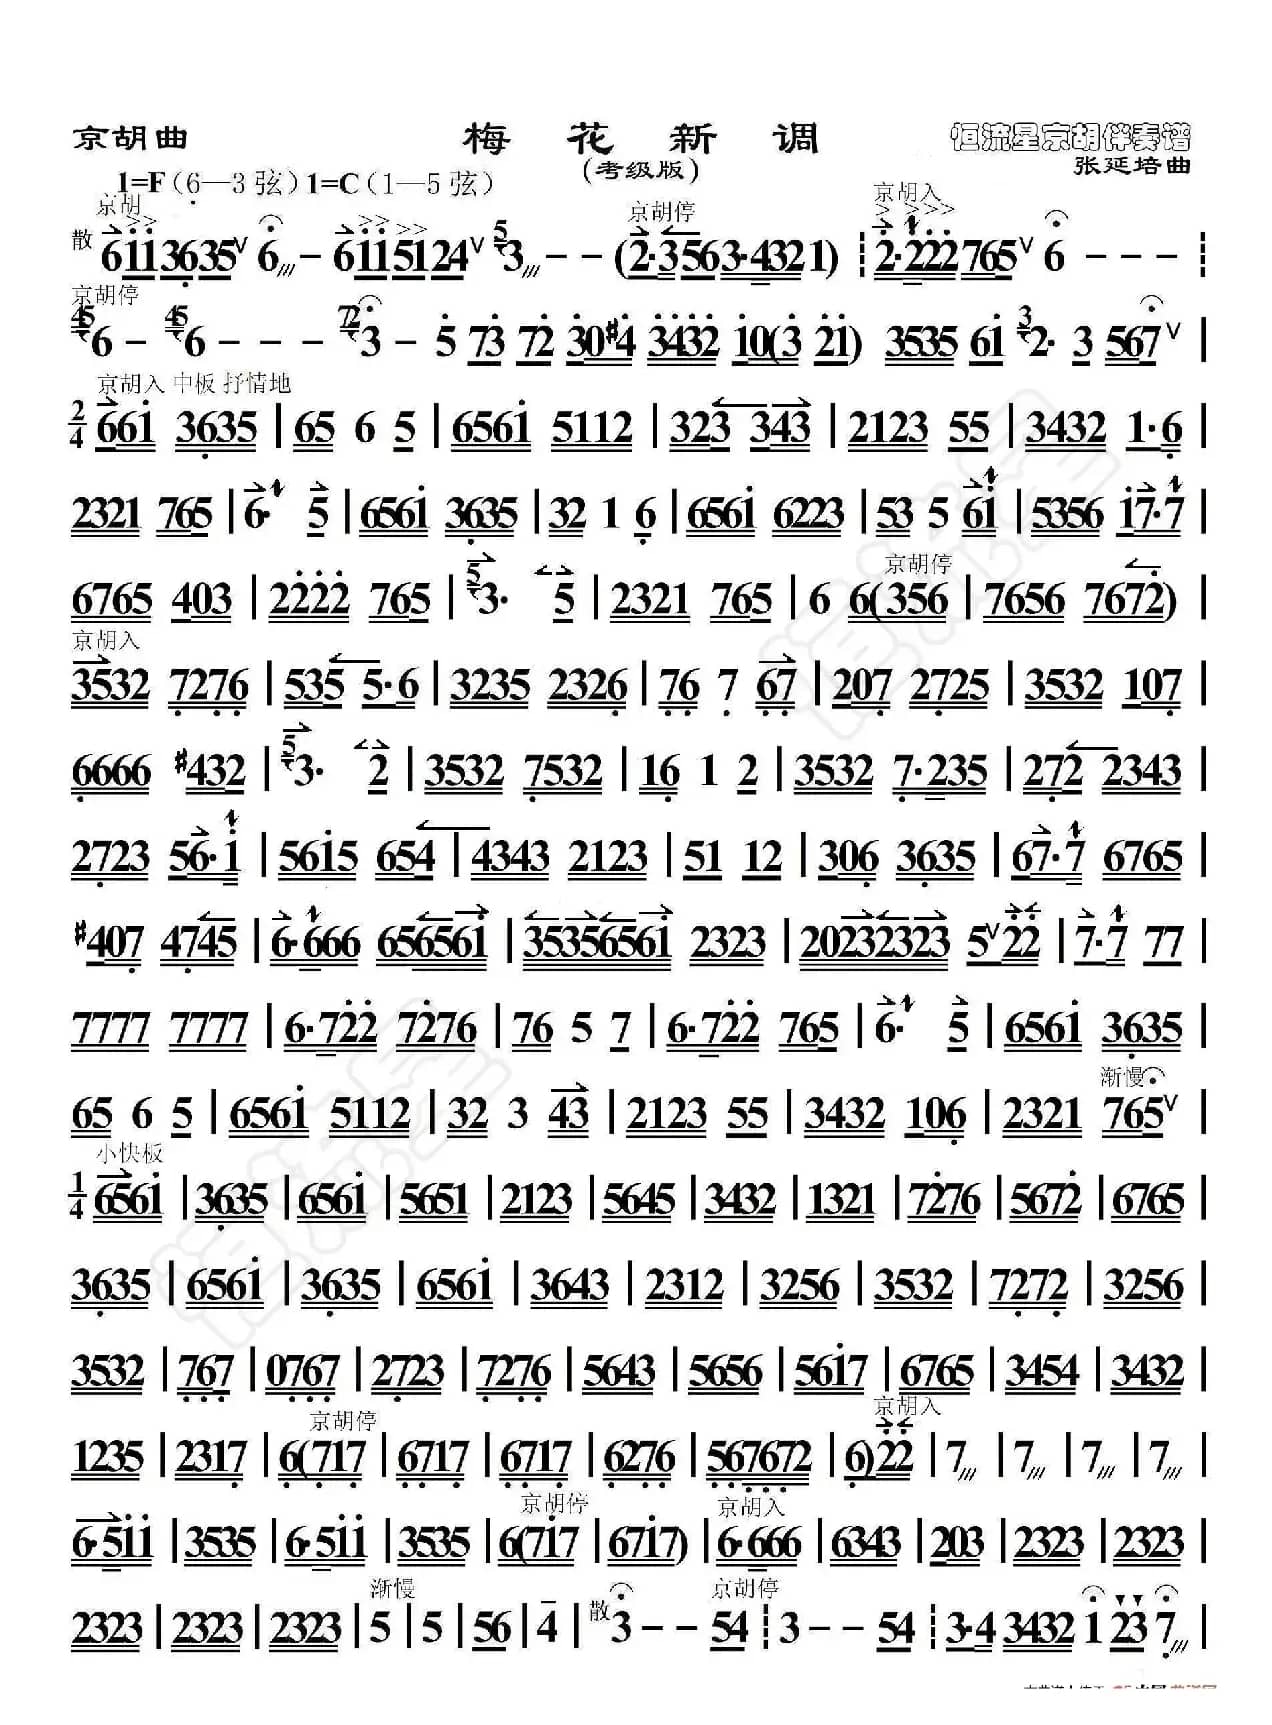 京胡曲 梅花新调 恒流星京胡伴奏谱
(考级版) 张延培曲
1=F(6—3弦)1=C(1—5弦)
京胡 京胡停 京胡入
散 6i i3635 ∨ 6 - - 6i i5124 ∨ 5 3 - - (2·3563·4321) 2·222765 ∨ 6 -
京胡停
45 6 - 45 6 - - - 72 3 - 5 73 72 30#4 3432 10(3 21) 3535 61 3 2· 3 567 ∨ |
京胡入 中板 抒情地
2/4 661 3635 | 65 6 5 | 6561 5112 | 323 343 | 2123 55 | 3432 1·6 |
2321 765 | 6· 5 | 6561 3635 | 32 1 6 | 6561 6223 | 53 5 61 | 5356 17·7 |
京胡停
6765 403 | 2222 765 | 5 3· 5 | 2321 765 | 6 6(356 | 7656 7672) |
京胡入
3532 7276 | 535 5·6 | 3235 2326 | 76 7 67 | 207 2725 | 3532 107 |
6666 #432 | 5 3· 2 | 3532 7532 | 16 1 2 | 3532 7·235 | 272 2343 |
2723 56·1 | 5615 654 | 4343 2123 | 51 12 | 306 3635 | 67·7 6765 |
#407 4745 | 6·666 656561 | 35356561 2323 | 20232323 5 ∨ 22 | 7·7 77 |
7777 7777 | 6·722 7276 | 76 5 7 | 6·722 765 | 6· 5 | 6561 3635 |
渐慢
65 6 5 | 6561 5112 | 32 3 43 | 2123 55 | 3432 106 | 2321 765 ∨ |
小快板
1/4 6561 | 3635 | 6561 | 5651 | 2123 | 5645 | 3432 | 1321 | 7276 | 5672 | 6765 |
3635 | 6561 | 3635 | 6561 | 3643 | 2312 | 3256 | 3532 | 7272 | 3256 |
3532 | 767 | 0767 | 2723 | 7276 | 5643 | 5656 | 5617 | 6765 | 3454 | 3432 |
京胡停 京胡入
1235 | 2317 | 6(717 | 6717 | 6717 | 6276 | 567672 | 6)22 | 7 | 7 | 7 | 7 |
京胡停 京胡入
6·511 | 3535 | 6·511 | 3535 | 6(717 | 6717) | 6·666 | 6343 | 203 | 2323 | 2323 |
渐慢 京胡停
2323 | 2323 | 2323 | 5 | 5 | 56 | 4 | 散 3 - - 54 3 - - 54 3·4 3432 1 23 7 |